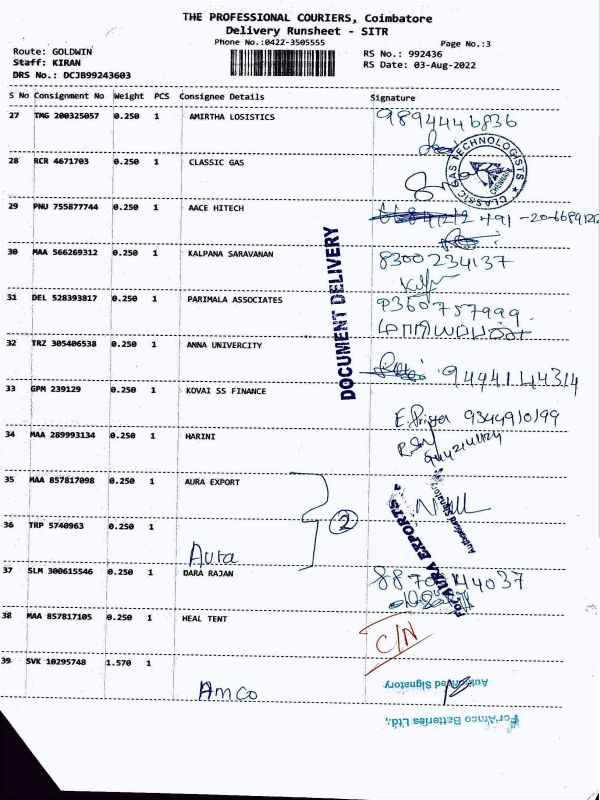 THE PROFESSIONAL COURIERS, Coimbatore
Delivery Runsheet - SITR
Phone No.:0422-3505555
Page No.:3
Route: GOLDWIN
RS No.: 992436
Staff: KIRAN
RS Date: 03-Aug-2022
DRS No.: DCJB99243603
S No Consignment No Weight PCS Consignee Details Signature
27 TMG 200325057 0.250 1 AMIRTHA LOSISTICS 9894446836
28 RCR 4671703 0.250 1 CLASSIC GAS
CLASSIC GAS TECHNOLOGISTS
29 PNU 755877744 0.250 1 AACE HITECH
30 MAA 566269312 0.250 1 KALPANA SARAVANAN 8300234137
31 DEL 528393817 0.250 1 PARIMALA ASSOCIATES 9360757999
DOCUMENT DELIVERY
32 TRZ 305406538 0.250 1 ANNA UNIVERCITY 9444144314
33 GPM 239129 0.250 1 KOVAI SS FINANCE E. Priya 9344910199
34 MAA 289993134 0.250 1 HARINI
35 MAA 857817098 0.250 1 AURA EXPORT
2
For AURA EXPORTS
Authorised Signatory
36 TRP 5740963 0.250 1 Aura
37 SLM 300615546 0.250 1 DARA RAJAN
38 MAA 857817105 0.250 1 HEAL TENT C/N
39 SVK 10295748 1.570 1 Amco
Authorised Signatory
For Amco Batteries Ltd.,